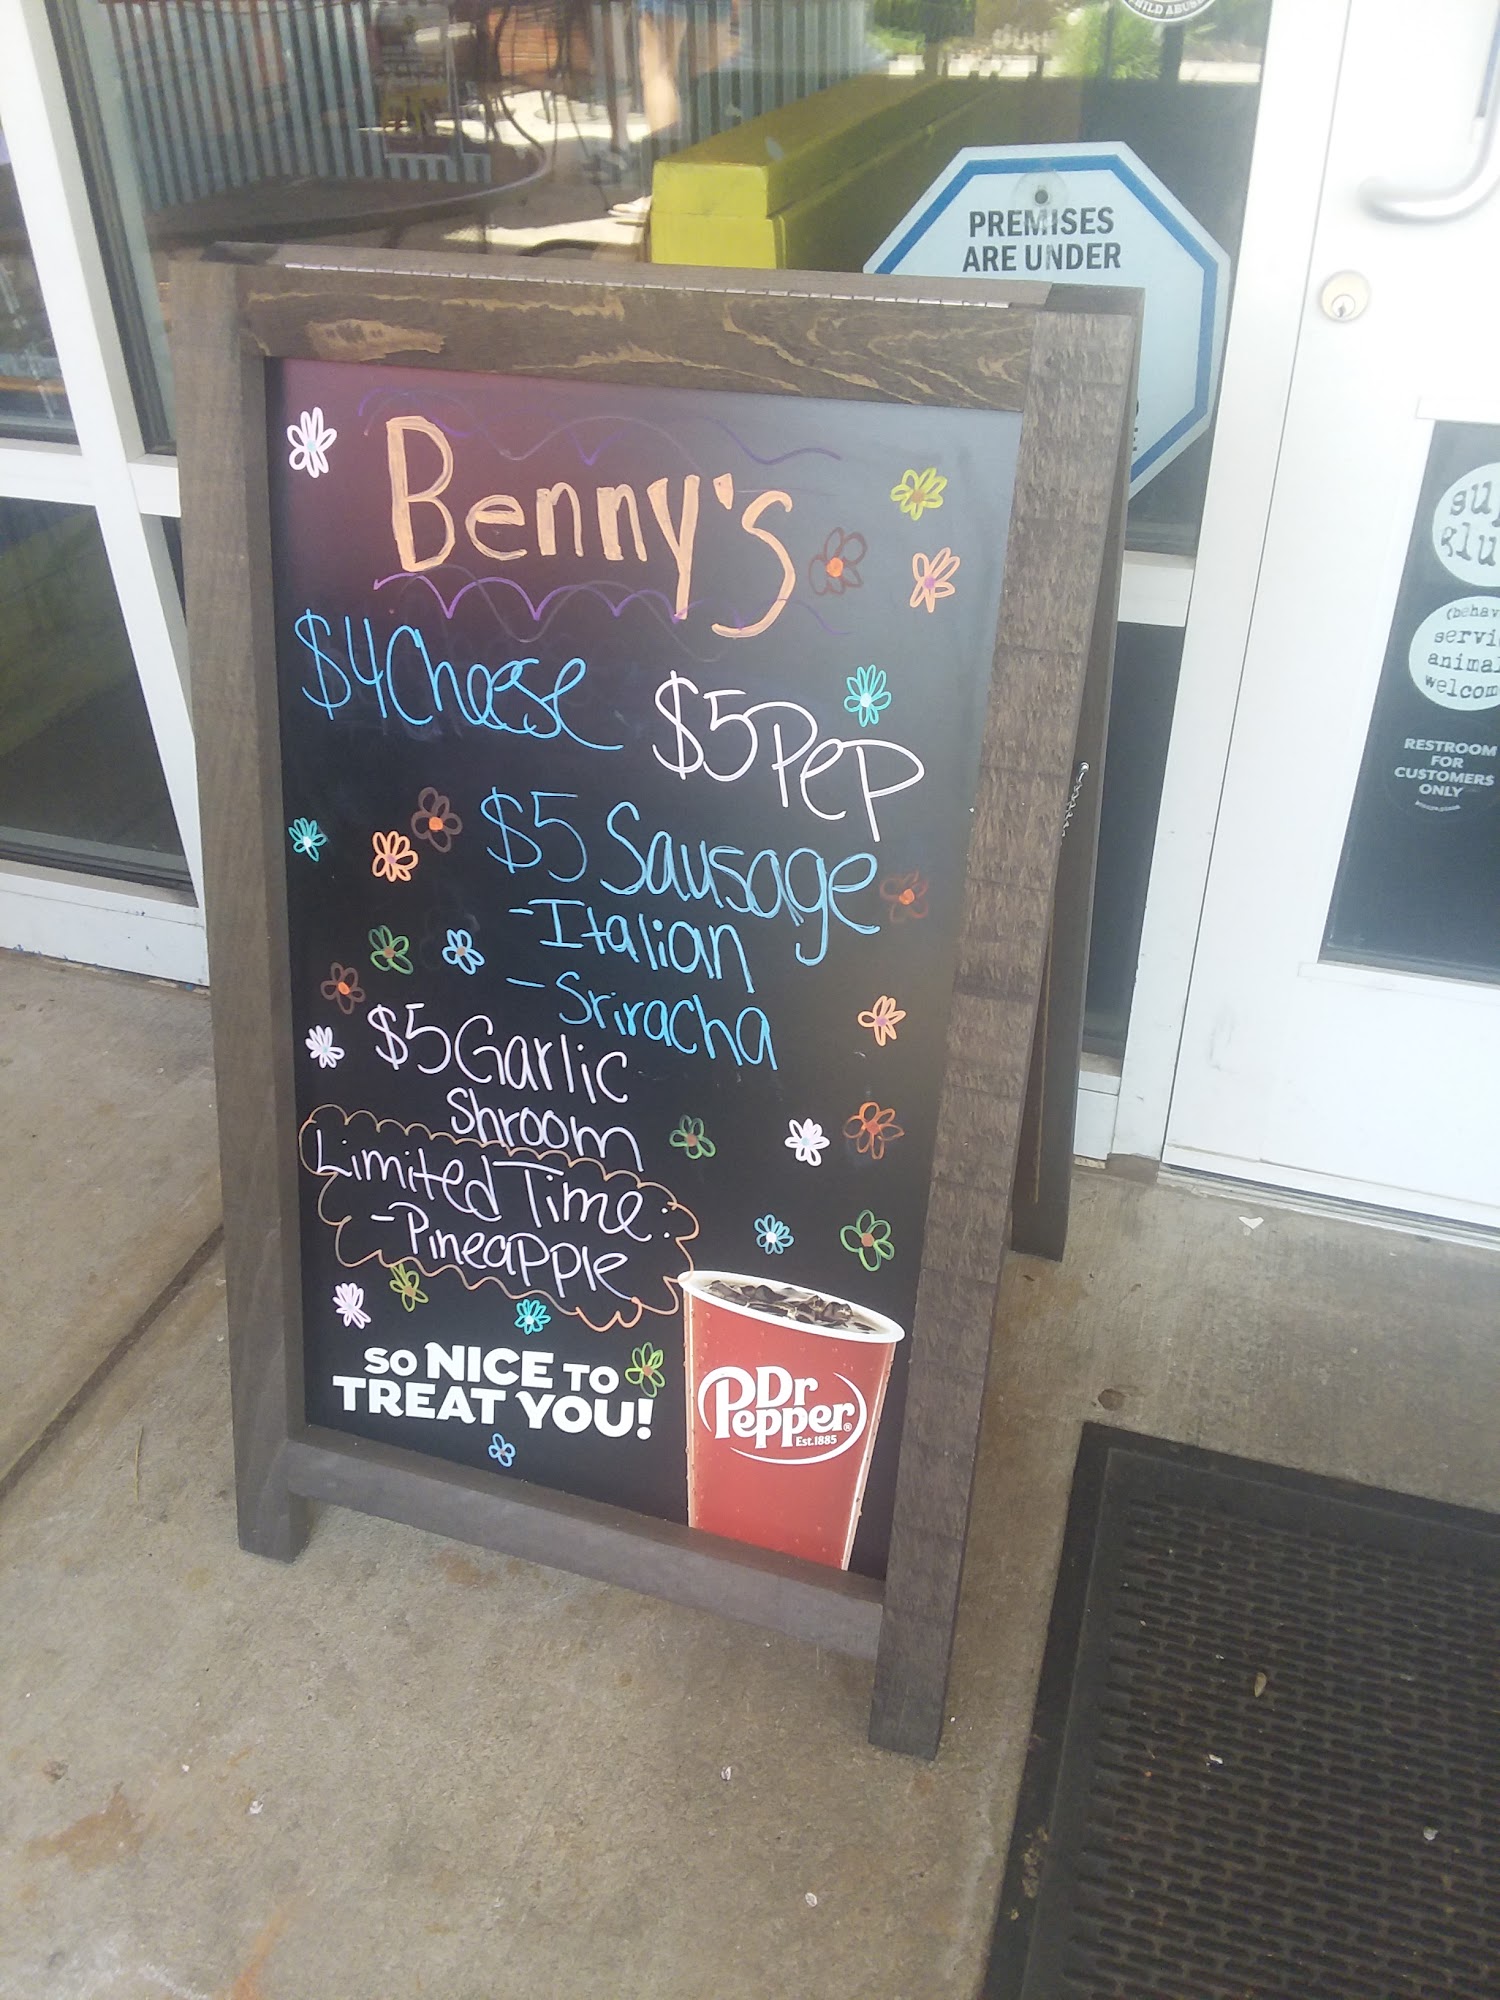 Benny's
$4 Cheese
$5 Pep
$5 Sausage
- Italian
- Sriracha
$5 Garlic
Shroom
Limited Time:
- Pineapple
SO NICE TO
TREAT YOU!
Dr
Pepper®
Est.1885
PREMISES
ARE UNDER
CHILD ABUSE
(behav
servi
animal
welcom
RESTROOM
FOR
CUSTOMERS
ONLY